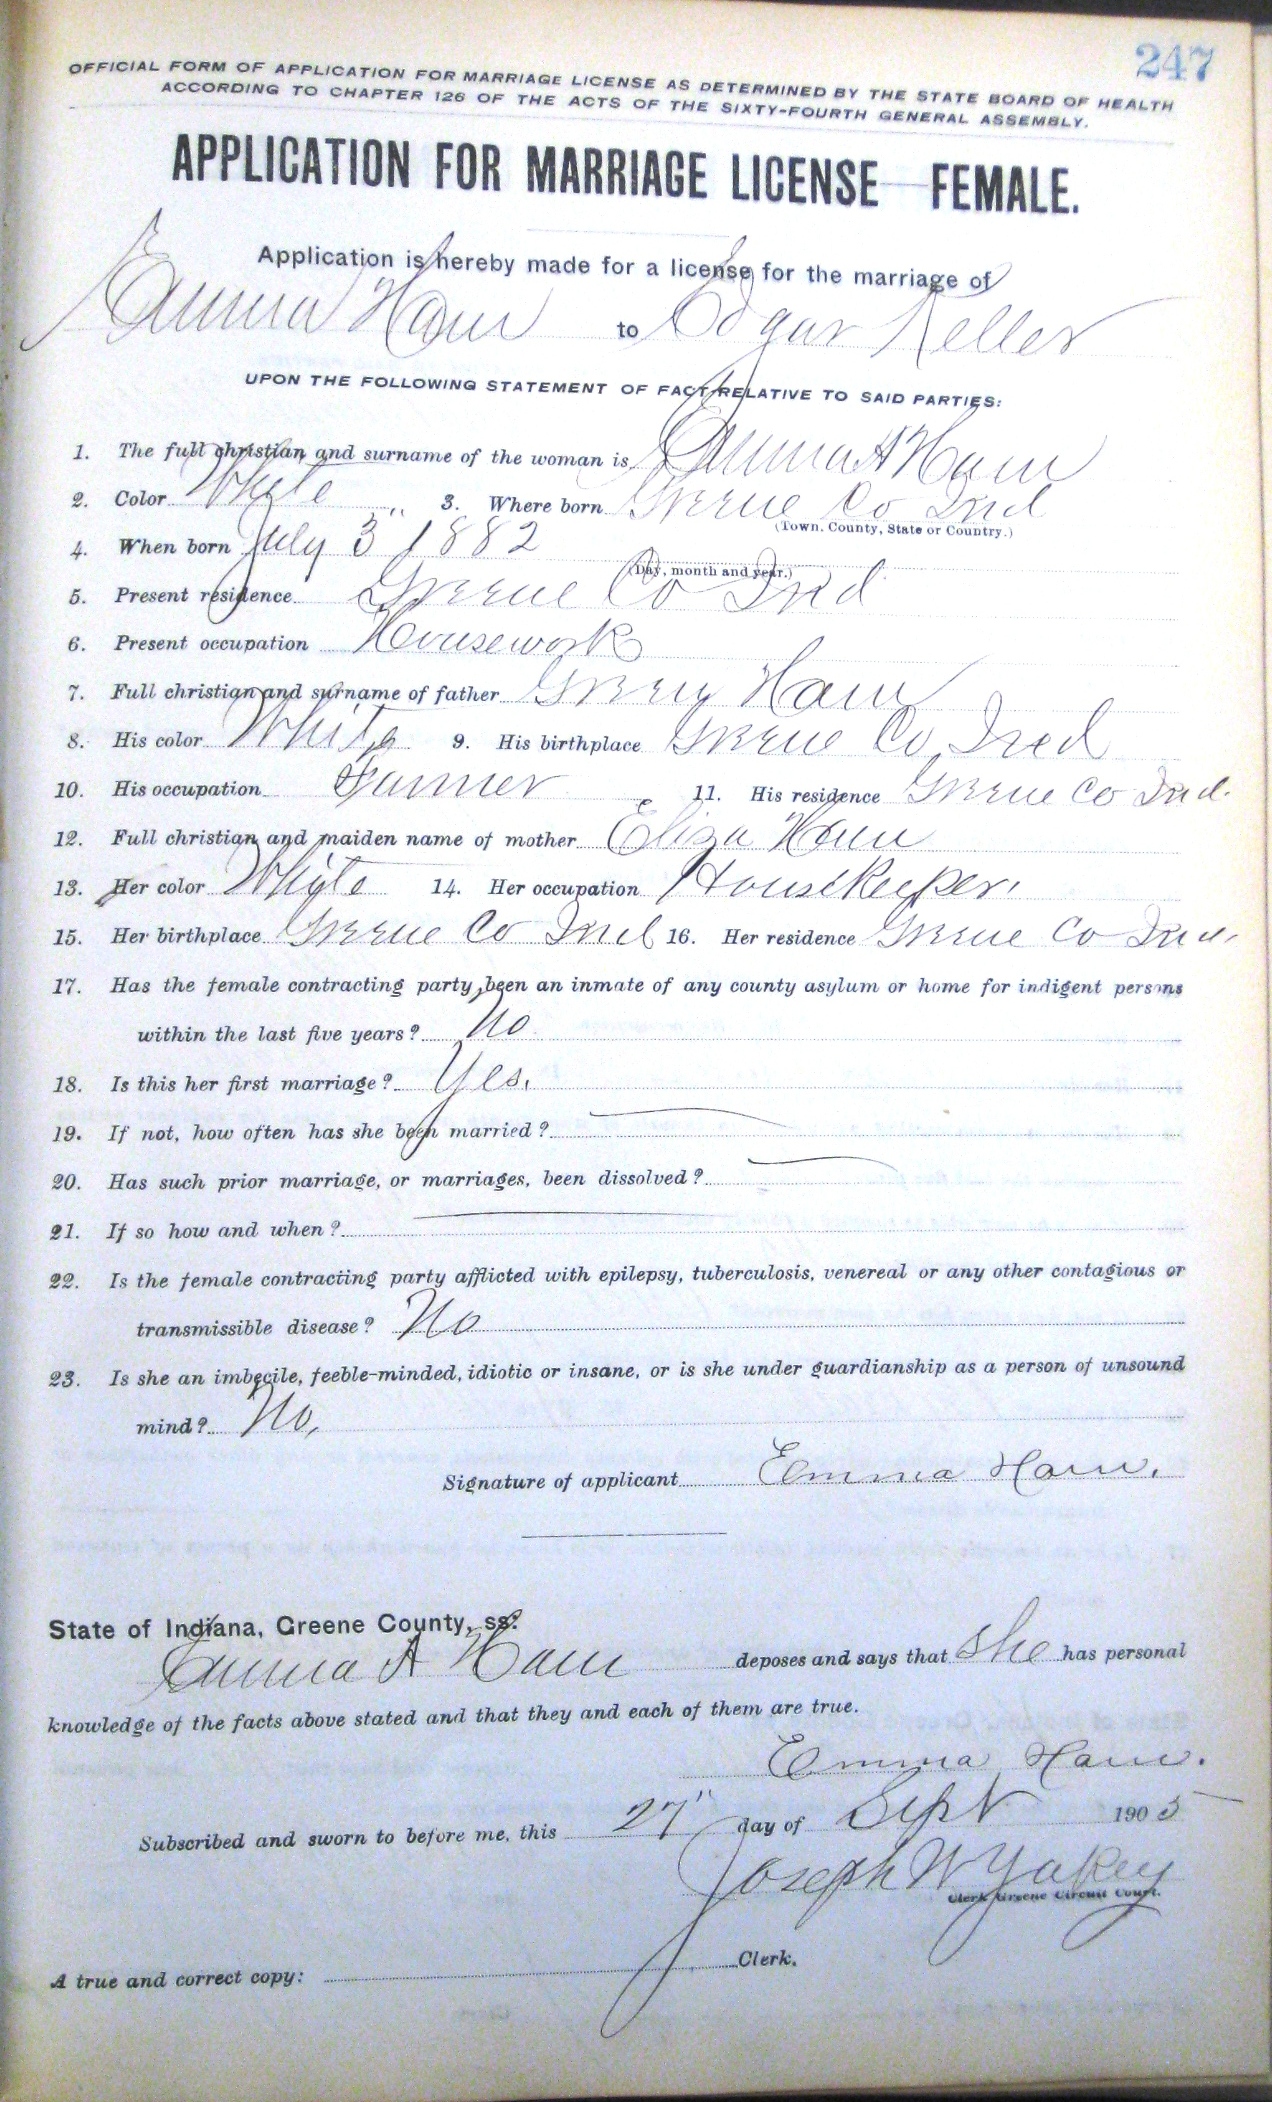 247
OFFICIAL FORM OF APPLICATION FOR MARRIAGE LICENSE AS DETERMINED BY THE STATE BOARD OF HEALTH
ACCORDING TO CHAPTER 126 OF THE ACTS OF THE SIXTY-FOURTH GENERAL ASSEMBLY.
APPLICATION FOR MARRIAGE LICENSE—FEMALE.
Application is hereby made for a license for the marriage of
Emma Ham to Edgar Keller
UPON THE FOLLOWING STATEMENT OF FACT RELATIVE TO SAID PARTIES:
1. The full christian and surname of the woman is Emma A Ham
2. Color Whyte 3. Where born Greene Co Ind
(Town, County, State or Country.)
4. When born July 3 1882
(Day, month and year.)
5. Present residence Greene Co Ind
6. Present occupation Housework
7. Full christian and surname of father Ham
8. His color White 9. His birthplace Greene Co Ind
10. His occupation Farmer 11. His residence Greene Co Ind.
12. Full christian and maiden name of mother Eliza Ham
13. Her color Whyte 14. Her occupation Housekeeper.
15. Her birthplace Greene Co Ind 16. Her residence Greene Co Ind.
17. Has the female contracting party been an inmate of any county asylum or home for indigent persons
within the last five years? No
18. Is this her first marriage? Yes.
19. If not, how often has she been married?
20. Has such prior marriage, or marriages, been dissolved?
21. If so how and when?
22. Is the female contracting party afflicted with epilepsy, tuberculosis, venereal or any other contagious or
transmissible disease? No
23. Is she an imbecile, feeble-minded, idiotic or insane, or is she under guardianship as a person of unsound
mind? No.
Signature of applicant Emma Ham.
State of Indiana, Greene County, ss:
Emma A Ham deposes and says that she has personal
knowledge of the facts above stated and that they and each of them are true.
Emma Ham.
Subscribed and sworn to before me, this 27" day of Sept 1905
Joseph W Yakey
Clerk Greene Circuit Court.
A true and correct copy: Clerk.